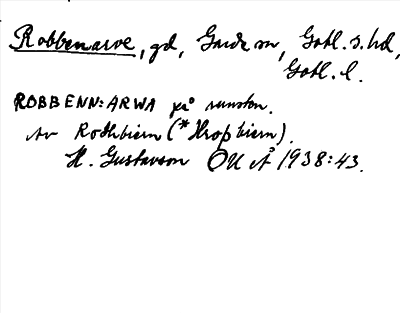 Robbenarve, gd, Garde sn, Gotl. s. hd,
Gotl. l.
ROBBENN:ARWA på runsten.
Av Rothbiern (*Hropbiern).
H. Gustavson OUÅ 1938:43.